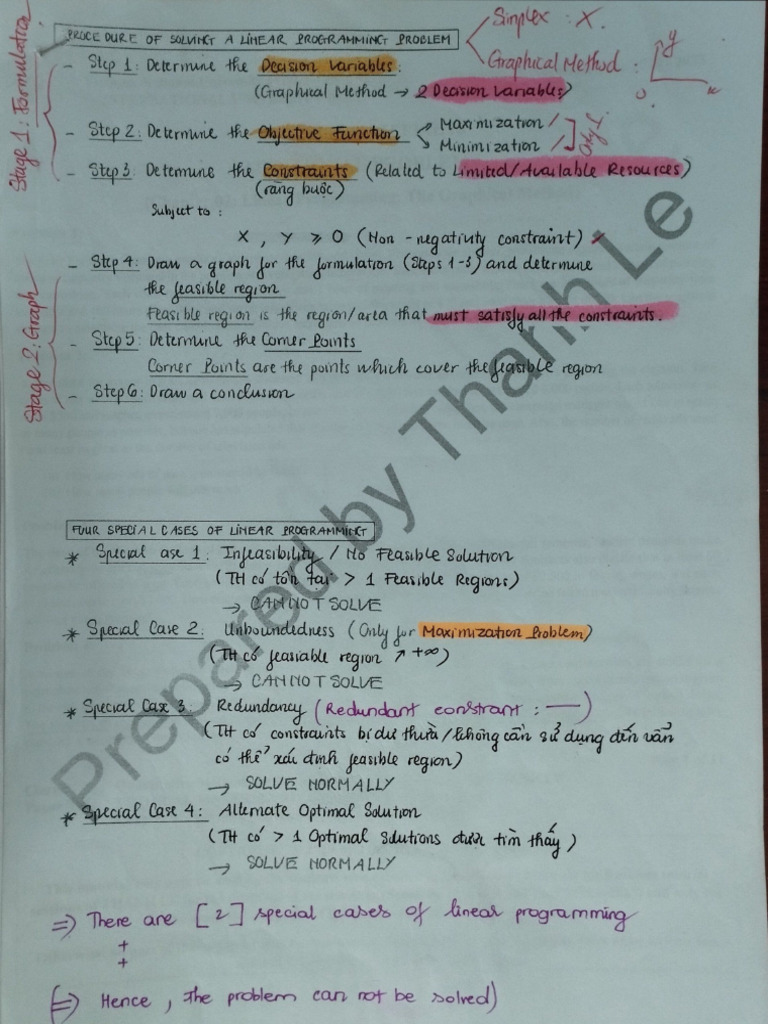 PROCEDURE OF SOLVING A LINEAR PROGRAMMING PROBLEM
Simplex : X.
Graphical Method :
y
o
x
Stage 1: Formulation
- Step 1: Determine the Decision Variables.
(Graphical Method → 2 Decision Variables)
- Step 2: Determine the Objective Function < Maximization /
Minimization /
Only 1
- Step 3: Determine the Constraints (Related to Limited/Available Resources)
(ràng buộc)
Subject to:
X, Y ≥ 0 (Non-negativity constraint)
Stage 2: Graph
- Step 4: Draw a graph for the formulation (Steps 1-3) and determine
the feasible region
Feasible region is the region/area that must satisfy all the constraints.
- Step 5: Determine the Corner Points
Corner Points are the points which cover the feasible region
- Step 6: Draw a conclusion
Prepared by Thanh Le
FOUR SPECIAL CASES OF LINEAR PROGRAMMING
* Special ase 1: Infeasibility / No Feasible Solution
(TH có tồn tại > 1 Feasible Regions)
→ CAN NOT SOLVE
* Special Case 2: Unboundedness (Only for Maximization Problem)
(TH có feasiable region ↗ +∞)
→ CAN NOT SOLVE
* Special Case 3: Redundancy (Redundant constrant : —)
(TH có constraints bị dư thừa/không cần sử dụng đến vẫn
có thể xác định feasible region)
→ SOLVE NORMALLY
* Special Case 4: Alternate Optimal Solution
(TH có > 1 Optimal Solutions được tìm thấy)
→ SOLVE NORMALLY
⇒ There are [2] special cases of linear programming
+
+
(⇒ Hence, the problem can not be solved)